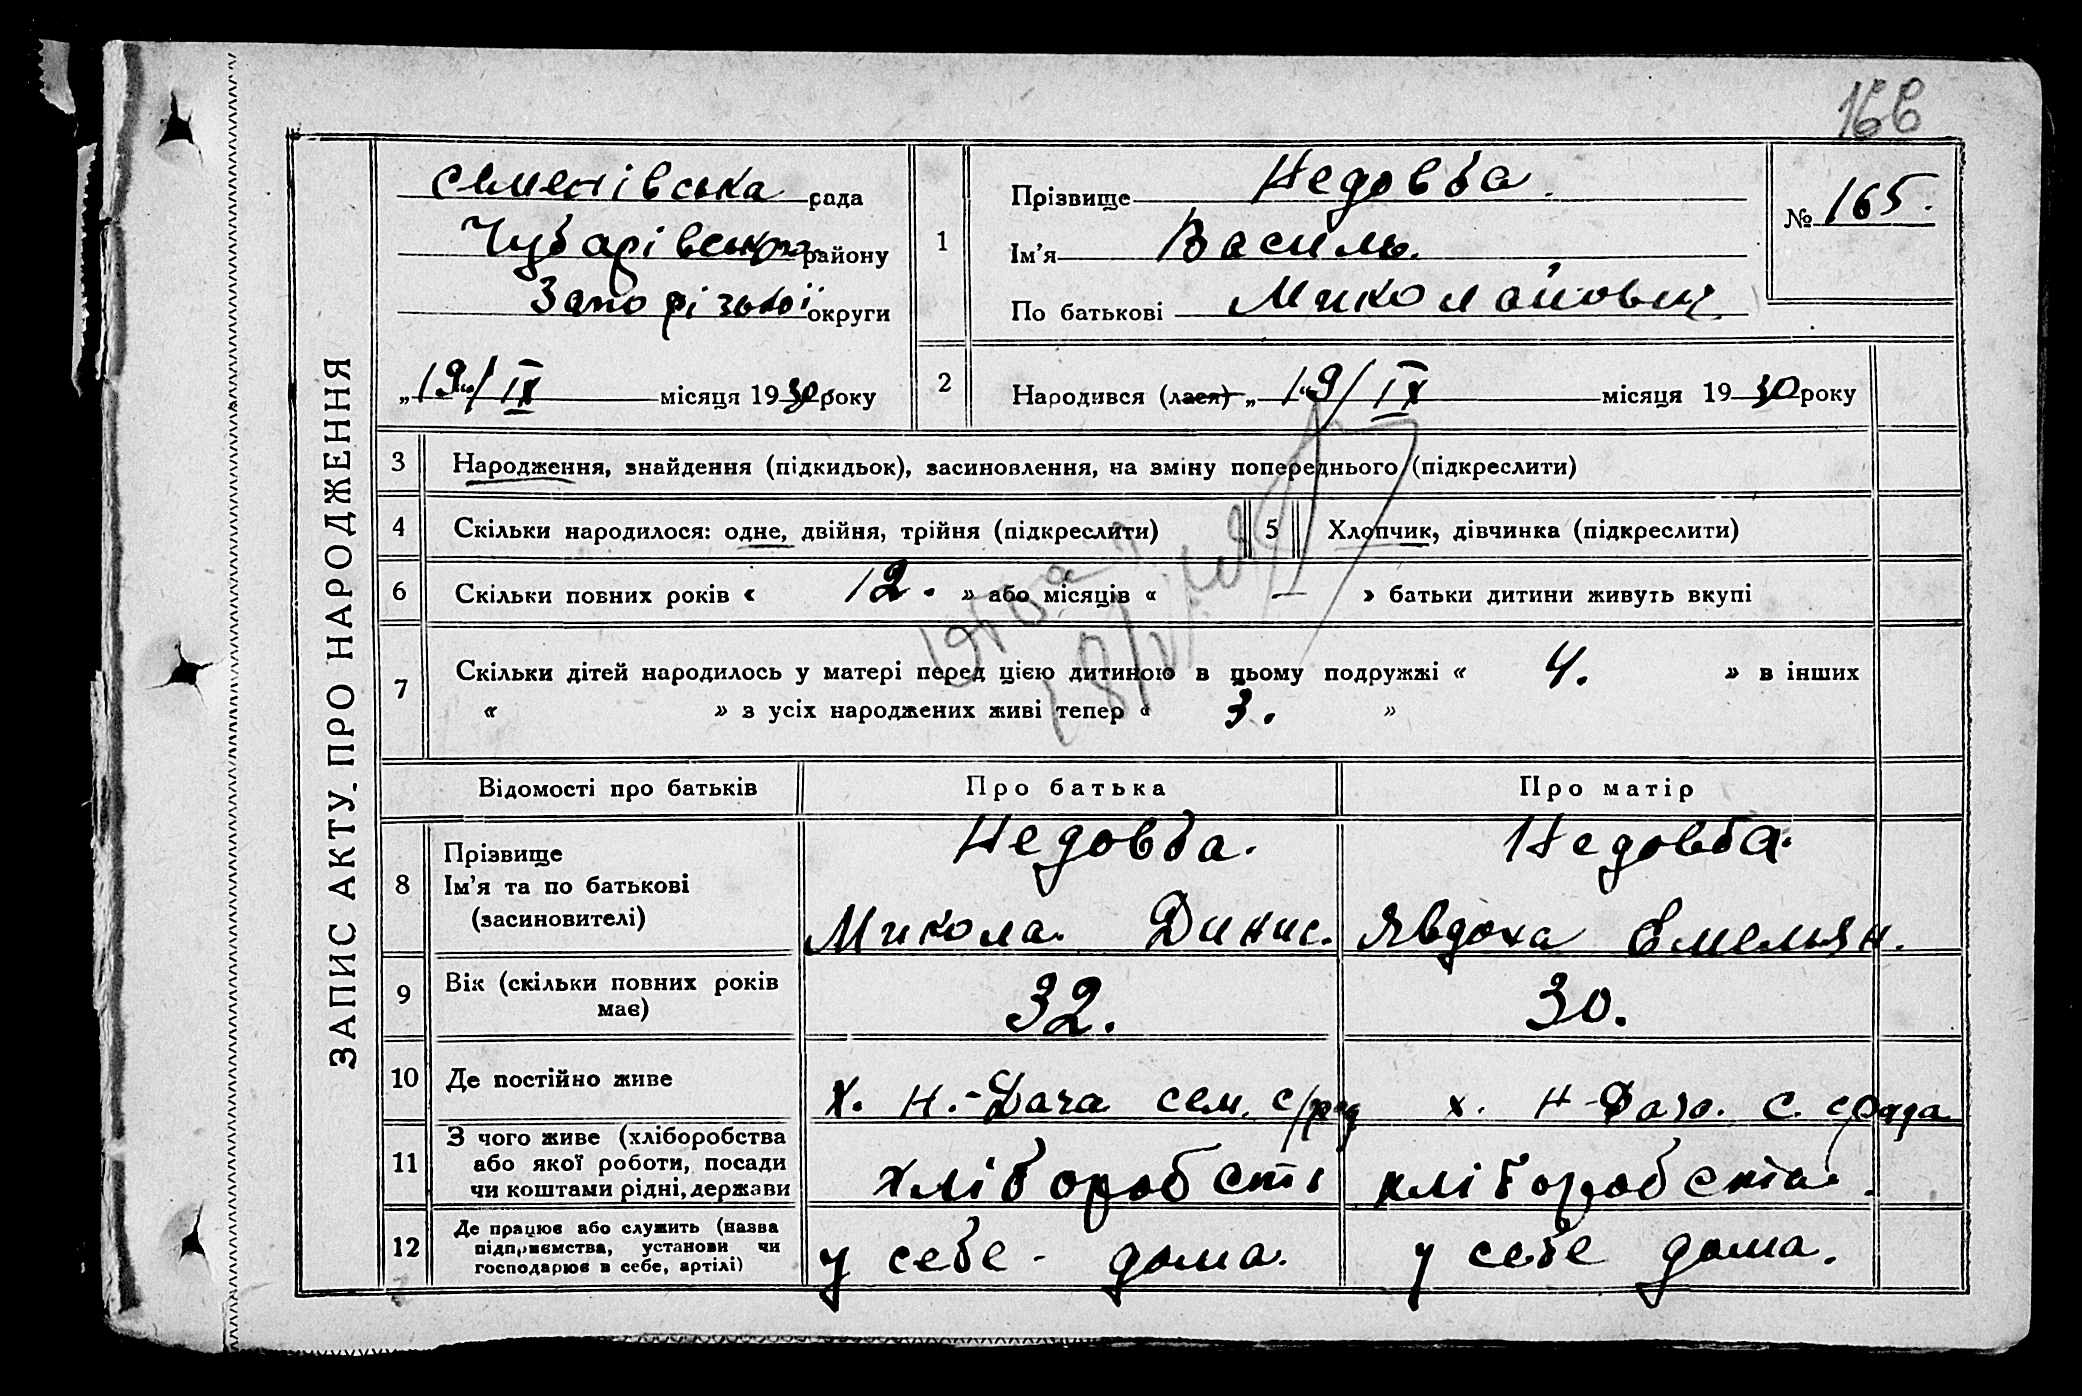 166
ЗАПИС АКТУ ПРО НАРОДЖЕННЯ
Семенівська рада
Чубарівськ району
Запорізької округи
„19/IX місяця 1930 року
1
Прізвище Недовба.
Ім'я Василь.
По батькові Миколайович
№ 165.
2
Народився (лася) „19/IX місяця 1930 року
3 Народження, знайдення (підкидьок), засиновлення, на зміну попереднього (підкреслити)
4 Скільки народилося: одне, двійня, трійня (підкреслити)
5 Хлопчик, дівчинка (підкреслити)
6 Скільки повних років « 12. » або місяців « — » батьки дитини живуть вкупі
7 Скільки дітей народилось у матері перед цією дитиною в цьому подружжі « 4. » в інших
« » з усіх народжених живі тепер « 3. »
Відомості про батьків Про батька Про матір
8 Прізвище
Ім'я та по батькові
(засиновителі)
Недовба.
Микола Динис.
Недовба.
Явдоха Омельян.
9 Вік (скільки повних років
має)
32. 30.
10 Де постійно живе
х. Н.-Дача сем. с/рад
х. Н-Дача. С. с/рада
11 З чого живе (хліборобства
або якої роботи, посади
чи коштами рідні, держави
хліборобств
хліборобства.
12 Де працює або служить (назва
підприємства, установи чи
господарює в себе, артілі)
у себе - дома.
у себе дома.